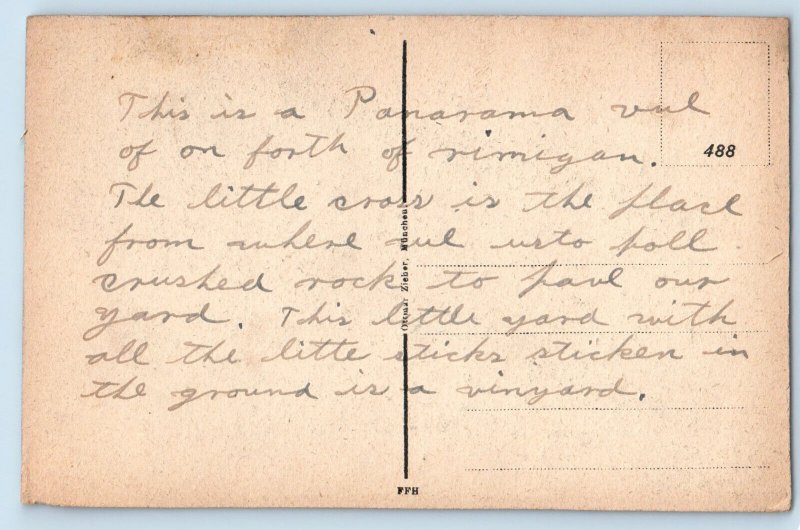 This is a Panarama vul
of on forth of rimigan.
488
The little cross is the place
from where we usto poll
crushed rock to pave our
yard. This little yard with
all the little sticks sticken in
the ground is a vinyard.
Ottmar Zieher, München
FFH